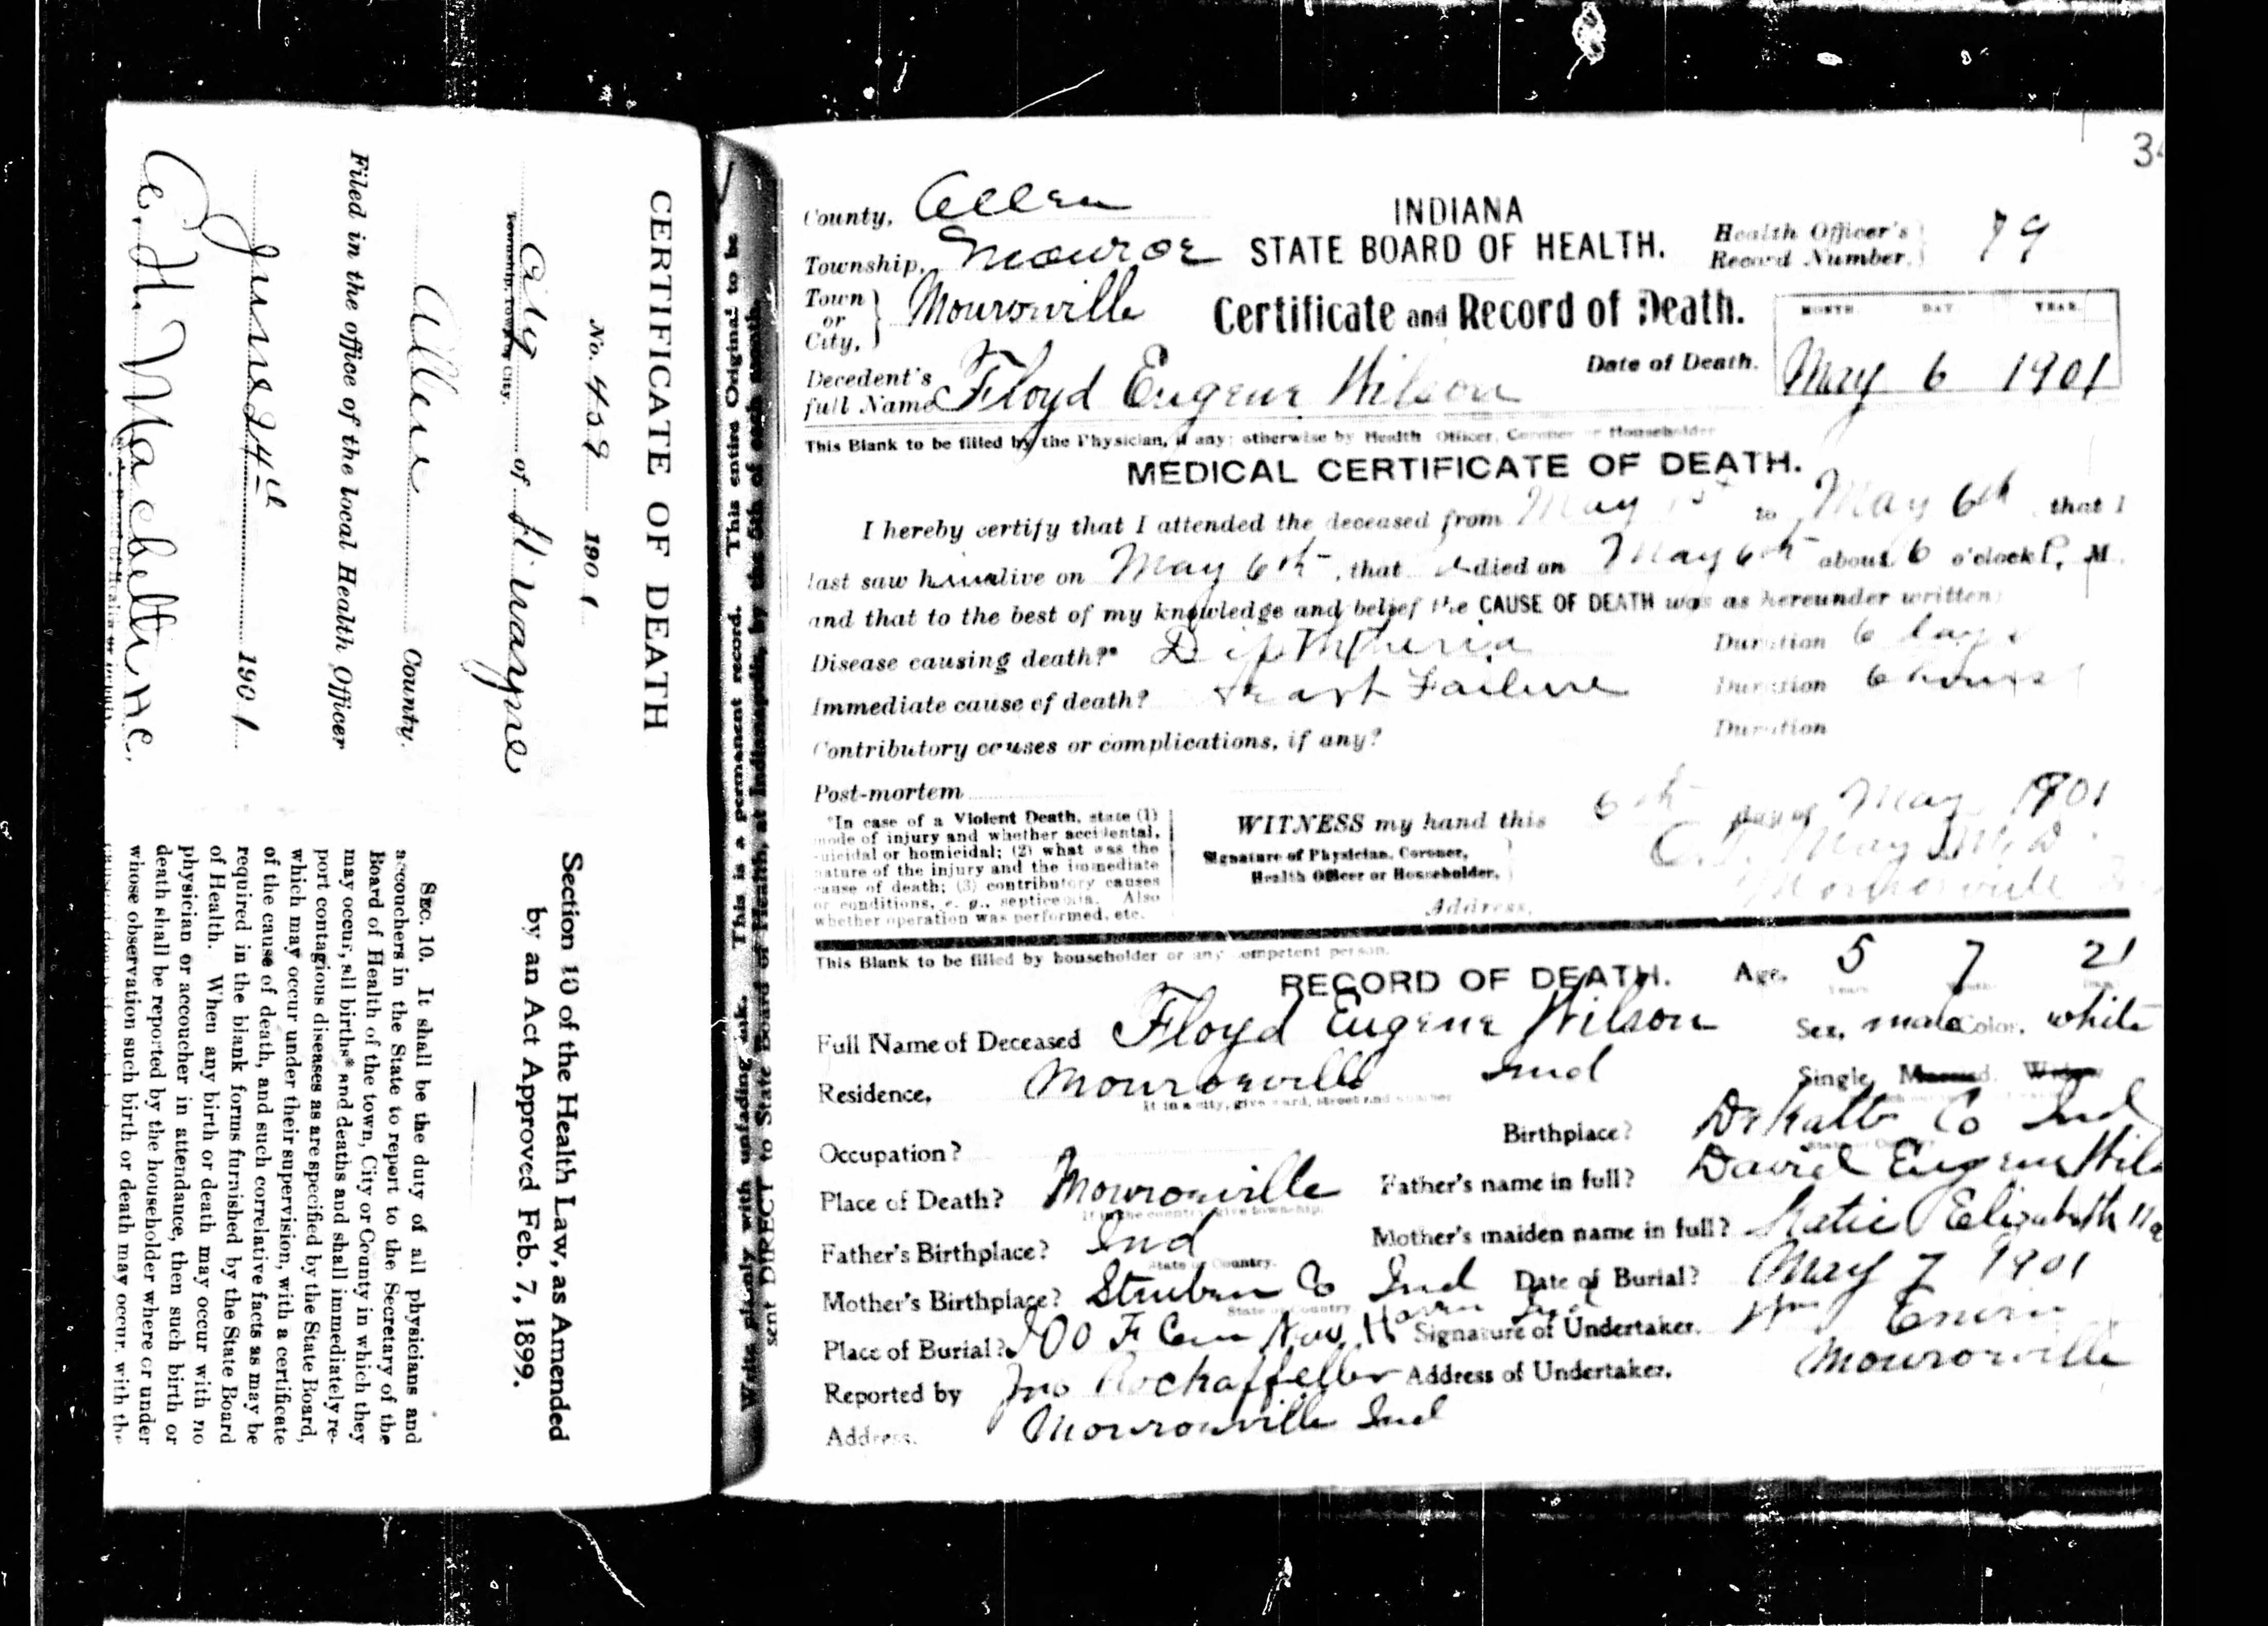 CERTIFICATE OF DEATH
No. 459 1901
City of Ft Wayne
Township, Town or City.
Allen County.
Filed in the office of the local Health Officer
June 24th 1901
Section 10 of the Health Law, as Amended
by an Act Approved Feb. 7, 1899.
SEC. 10. It shall be the duty of all physicians and
accouchers in the State to report to the Secretary of the
Board of Health of the town, City or County in which they
may occur, all births* and deaths and shall immediately re-
port contagious diseases as are specified by the State Board,
which may occur under their supervision, with a certificate
of the cause of death, and such correlative facts as may be
required in the blank forms furnished by the State Board
of Health. When any birth or death may occur with no
physician or accoucher in attendance, then such birth or
death shall be reported by the householder where or under
whose observation such birth or death may occur, with the
Write plainly with unfading ink. This is a permanent record. This entire Original to be
sent DIRECT to State Board of Health, at Indianapolis, by the 5th of each month.
34
County, Allen
INDIANA
STATE BOARD OF HEALTH.
Health Officer's Record Number. 79
Township, Monroe
Town or City, Monroeville
Certificate and Record of Death.
MONTH. DAY YEAR.
Date of Death. May 6 1901
Decedent's full Name Floyd Eugene Wilson
This Blank to be filled by the Physician, if any; otherwise by Health Officer, Coroner or Householder
MEDICAL CERTIFICATE OF DEATH.
I hereby certify that I attended the deceased from May 1st to May 6th that I
last saw him alive on May 6th, that died on May 6th about 6 o'clock P. M.
and that to the best of my knowledge and belief the CAUSE OF DEATH was as hereunder written:
Disease causing death?* Diphtheria Duration 6 days
Immediate cause of death? Heart Failure Duration 6 hours
Contributory causes or complications, if any? Duration
Post-mortem
*In case of a Violent Death, state (1)
mode of injury and whether accidental,
suicidal or homicidal; (2) what was the
nature of the injury and the immediate
cause of death; (3) contributory causes
or conditions, e. g., septicemia. Also
whether operation was performed, etc.
WITNESS my hand this 6th day of May 1901
Signature of Physician, Coroner,
Health Officer or Householder, May M.D.
Address, Monroeville
This Blank to be filled by householder or any competent person.
RECORD OF DEATH. Age, 5 7 21
Full Name of Deceased Floyd Eugene Wilson Sex, male Color, white
Residence, Monroeville Ind Single Married. Widow
If in a city, give ward, street and number
Occupation? Birthplace? DeKalb Co Ind
Place of Death? Monroeville Father's name in full? David Eugene Wil
If in the country give township.
Father's Birthplace? Ind Mother's maiden name in full? Katie Elizabeth
State or Country.
Mother's Birthplace? Steuben Co Ind Date of Burial? May 7 1901
State or Country
Place of Burial? IOOF Cem New Haven Ind Signature of Undertaker. Wm
Reported by Jno Address of Undertaker. Monroeville
Address. Monroeville Ind